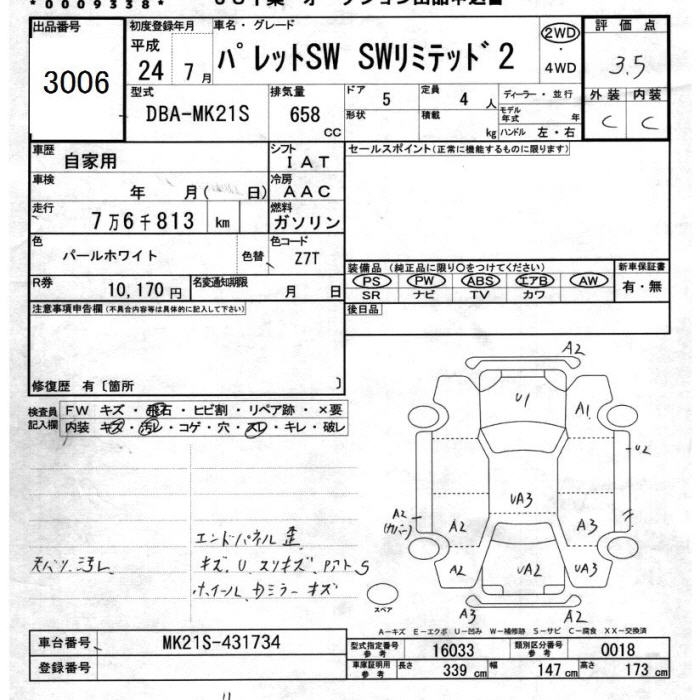 *0009338*
出品番号 初度登録年月 車名・グレード 評価点
3006 平成 24 7月 パレットSW SWリミテッド2 2WD ・ 4WD 3.5
型式 排気量 ドア 定員 ディーラー・並行 外装 内装
DBA-MK21S 658 CC 5 4人 モデル年式 年 C C
形状 積載 kg ハンドル 左・右
車歴 自家用 シフト IAT セールスポイント(正常に機能するものに限ります)
車検 年 月( 日) 冷房 AAC
走行 7万6千813 km 燃料 ガソリン
色 パールホワイト 色替 色コード Z7T
装備品 (純正品に限り○をつけてください) 新車保証書
PS PW ABS エアB AW 有・無
SR ナビ TV カワ
R券 10,170円 名変通知期限 月 日
注意事項申告欄(不具合内容等は具体的に記入して下さい) 後日品
修復歴 有〔箇所 〕
検査員記入欄 FW キズ・飛石・ヒビ割・リペア跡・×要
内装 キズ・汚レ・コゲ・穴・スレ・キレ・破レ
A2
U1 A1
U2
UA3
A2 (カバー) A2 A3
A2 UA2 UA3
A3 A2
スペア
エンドパネル 歪
天バリ汚レ キズ、U、スリキズ、
ホイール、
A-キズ E-エクボ U-凹み W-補修跡 S-サビ C-腐食 XX-交換済
車台番号 MK21S-431734 型式指定番号 参考 16033 類別区分番号 参考 0018
登録番号 車庫証明用 参考 長さ 339cm 幅 147cm 高さ 173cm